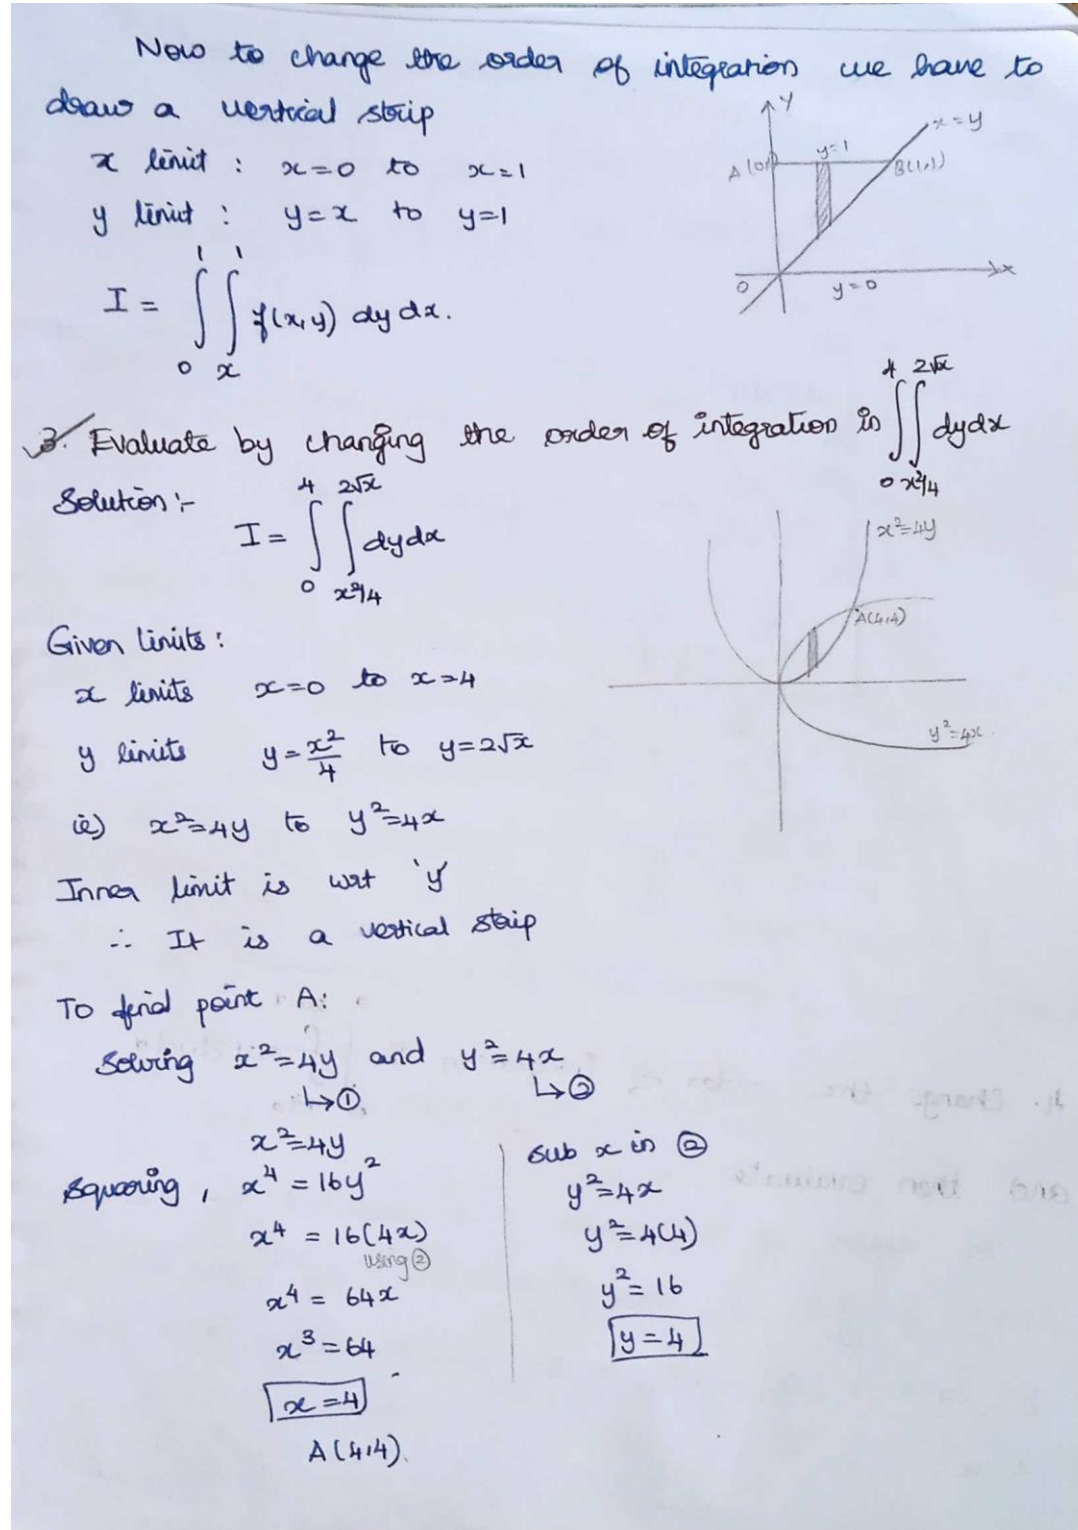 Now to change the order of integration we have to
draw a vertical strip
x limit : x=0 to x=1
y limit : y=x to y=1
I = ∫₀¹ ∫ₓ¹ f(x,y) dy dx.
Y
x=y
y=1
A(0,1)
B(1,1)
x
0
y=0
3. Evaluate by changing the order of integration in ∫₀⁴ ∫_{x²/4}^{2√x} dy dx
Solution :-
I = ∫₀⁴ ∫_{x²/4}^{2√x} dy dx
x²=4y
A(4,4)
y²=4x
Given limits :
x limits x=0 to x=4
y limits y=x²/4 to y=2√x
ie) x²=4y to y²=4x
Inner limit is wrt 'y'
∴ It is a vertical strip
To find point A:
Solving x²=4y and y²=4x
↳① ↳②
x²=4y
Squaring, x⁴ = 16y²
x⁴ = 16(4x)
using ②
x⁴ = 64x
x³ = 64
x=4
A(4,4).
sub x in ②
y²=4x
y²=4(4)
y²=16
y=4